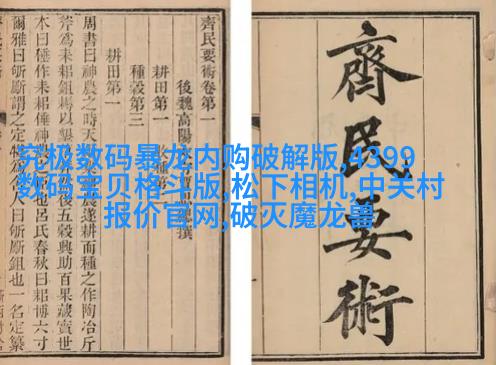 究极数码暴龙内购破解版,4399
数码宝贝格斗版,松下相机,中关村
报价官网,破灭魔龙兽
齊民要術
齊民要術卷第一
後魏高陽 撰
耕田第一
種穀第三
耕田第一
周書曰神農之時天 農遂耕而種之作陶冶斤
斧為耒耜鉏耨以墾 後五穀興助百果藏實世
本曰倕作耒耜倕神 也呂氏春秋曰耜博六寸
爾雅曰斪斸謂之定 為舍人曰斪斸鉏也一名定纂